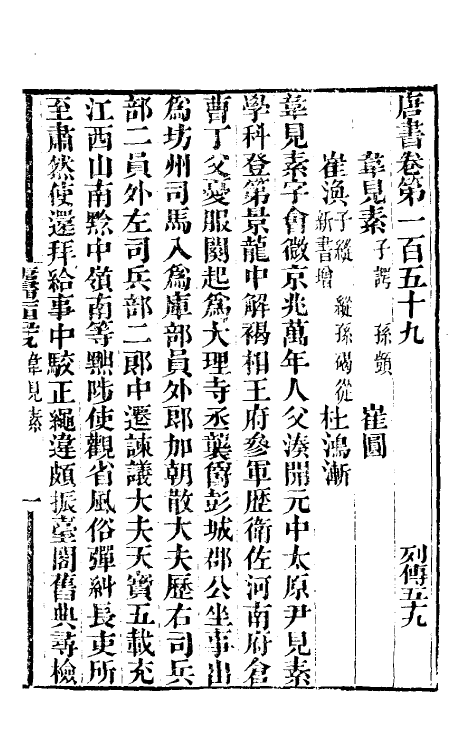 唐書卷第一百五十九　列傳五十九
韋見素子諤　孫顗　崔圓
崔渙子縱　縱孫碣從新書增　杜鴻漸
韋見素字會微京兆萬年人父湊開元中太原尹見素
學科登第景龍中解褐相王府參軍歷衛佐河南府倉
曹丁父憂服闋起爲大理寺丞襲爵彭城郡公坐事出
爲坊州司馬入爲庫部員外郎加朝散大夫歷右司兵
部二員外左司兵部二郎中遷諫議大夫天寶五載充
江西山南黔中嶺南等黜陟使觀省風俗彈糾長吏所
至肅然使還拜給事中駮正繩違頗振臺閣舊典尋檢
韋見素　一